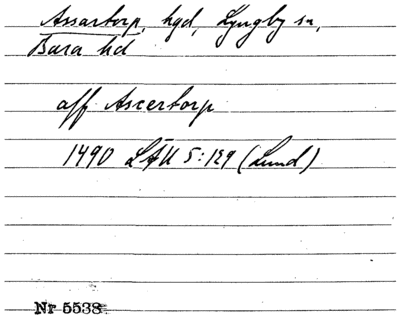 Assartorp, hgd, Lyngby sn,
Bara hd
aff Ascertorp
1490 LÄU 5:129 (Lund)
Nr 5538